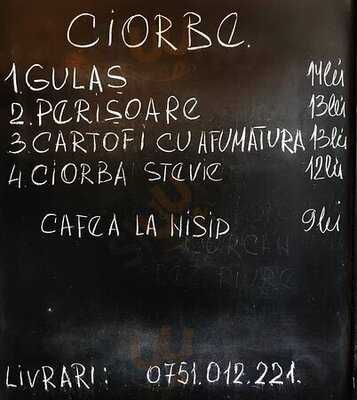 CIORBE.
1. GULAȘ 14 lei
2. PERIȘOARE 13 lei
3 CARTOFI CU AFUMATURA 13 lei
4. CIORBA STEVIE 12 lei
CAFEA LA NISIP 9 lei
LIVRARI: 0751.012.221.